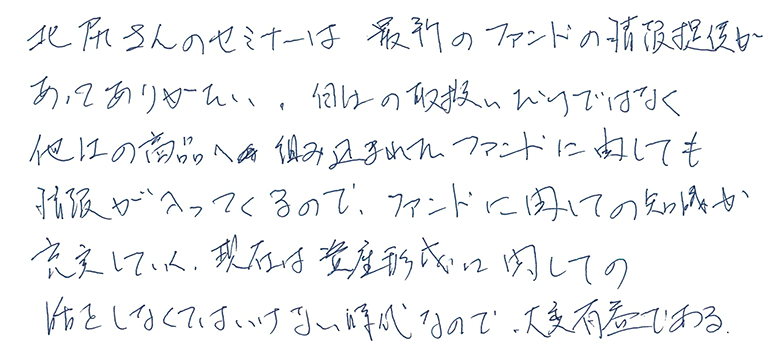 北尻さんのセミナーは 最新のファンドの情報提供が
あってありがたい。自社の取扱いだけではなく
他社の商品へ組み込まれたファンドに関しても
情報が入ってくるので、ファンドに関しての知識が
充実していく。現在は資産形成に関しての
話をしなくてはいけない時代なので、大変有益である。